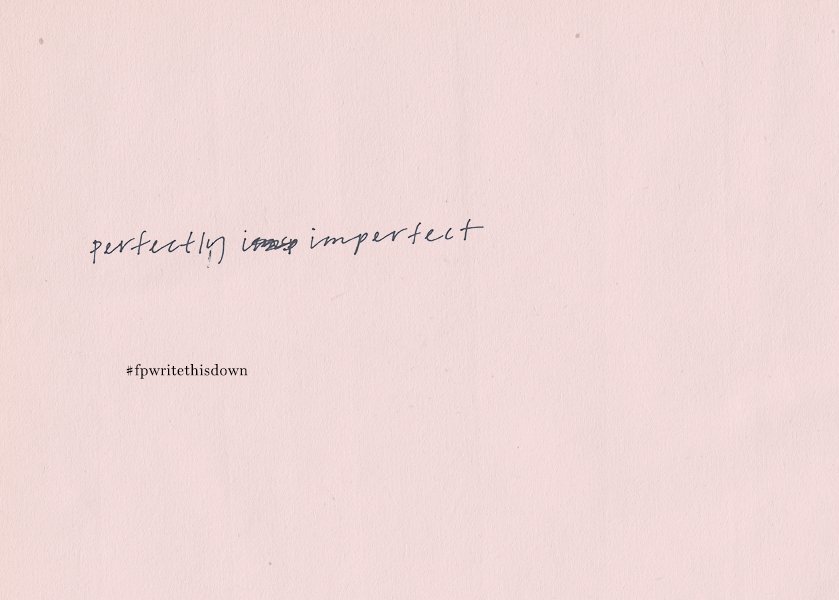 perfectly imperfect
#fpwritethisdown